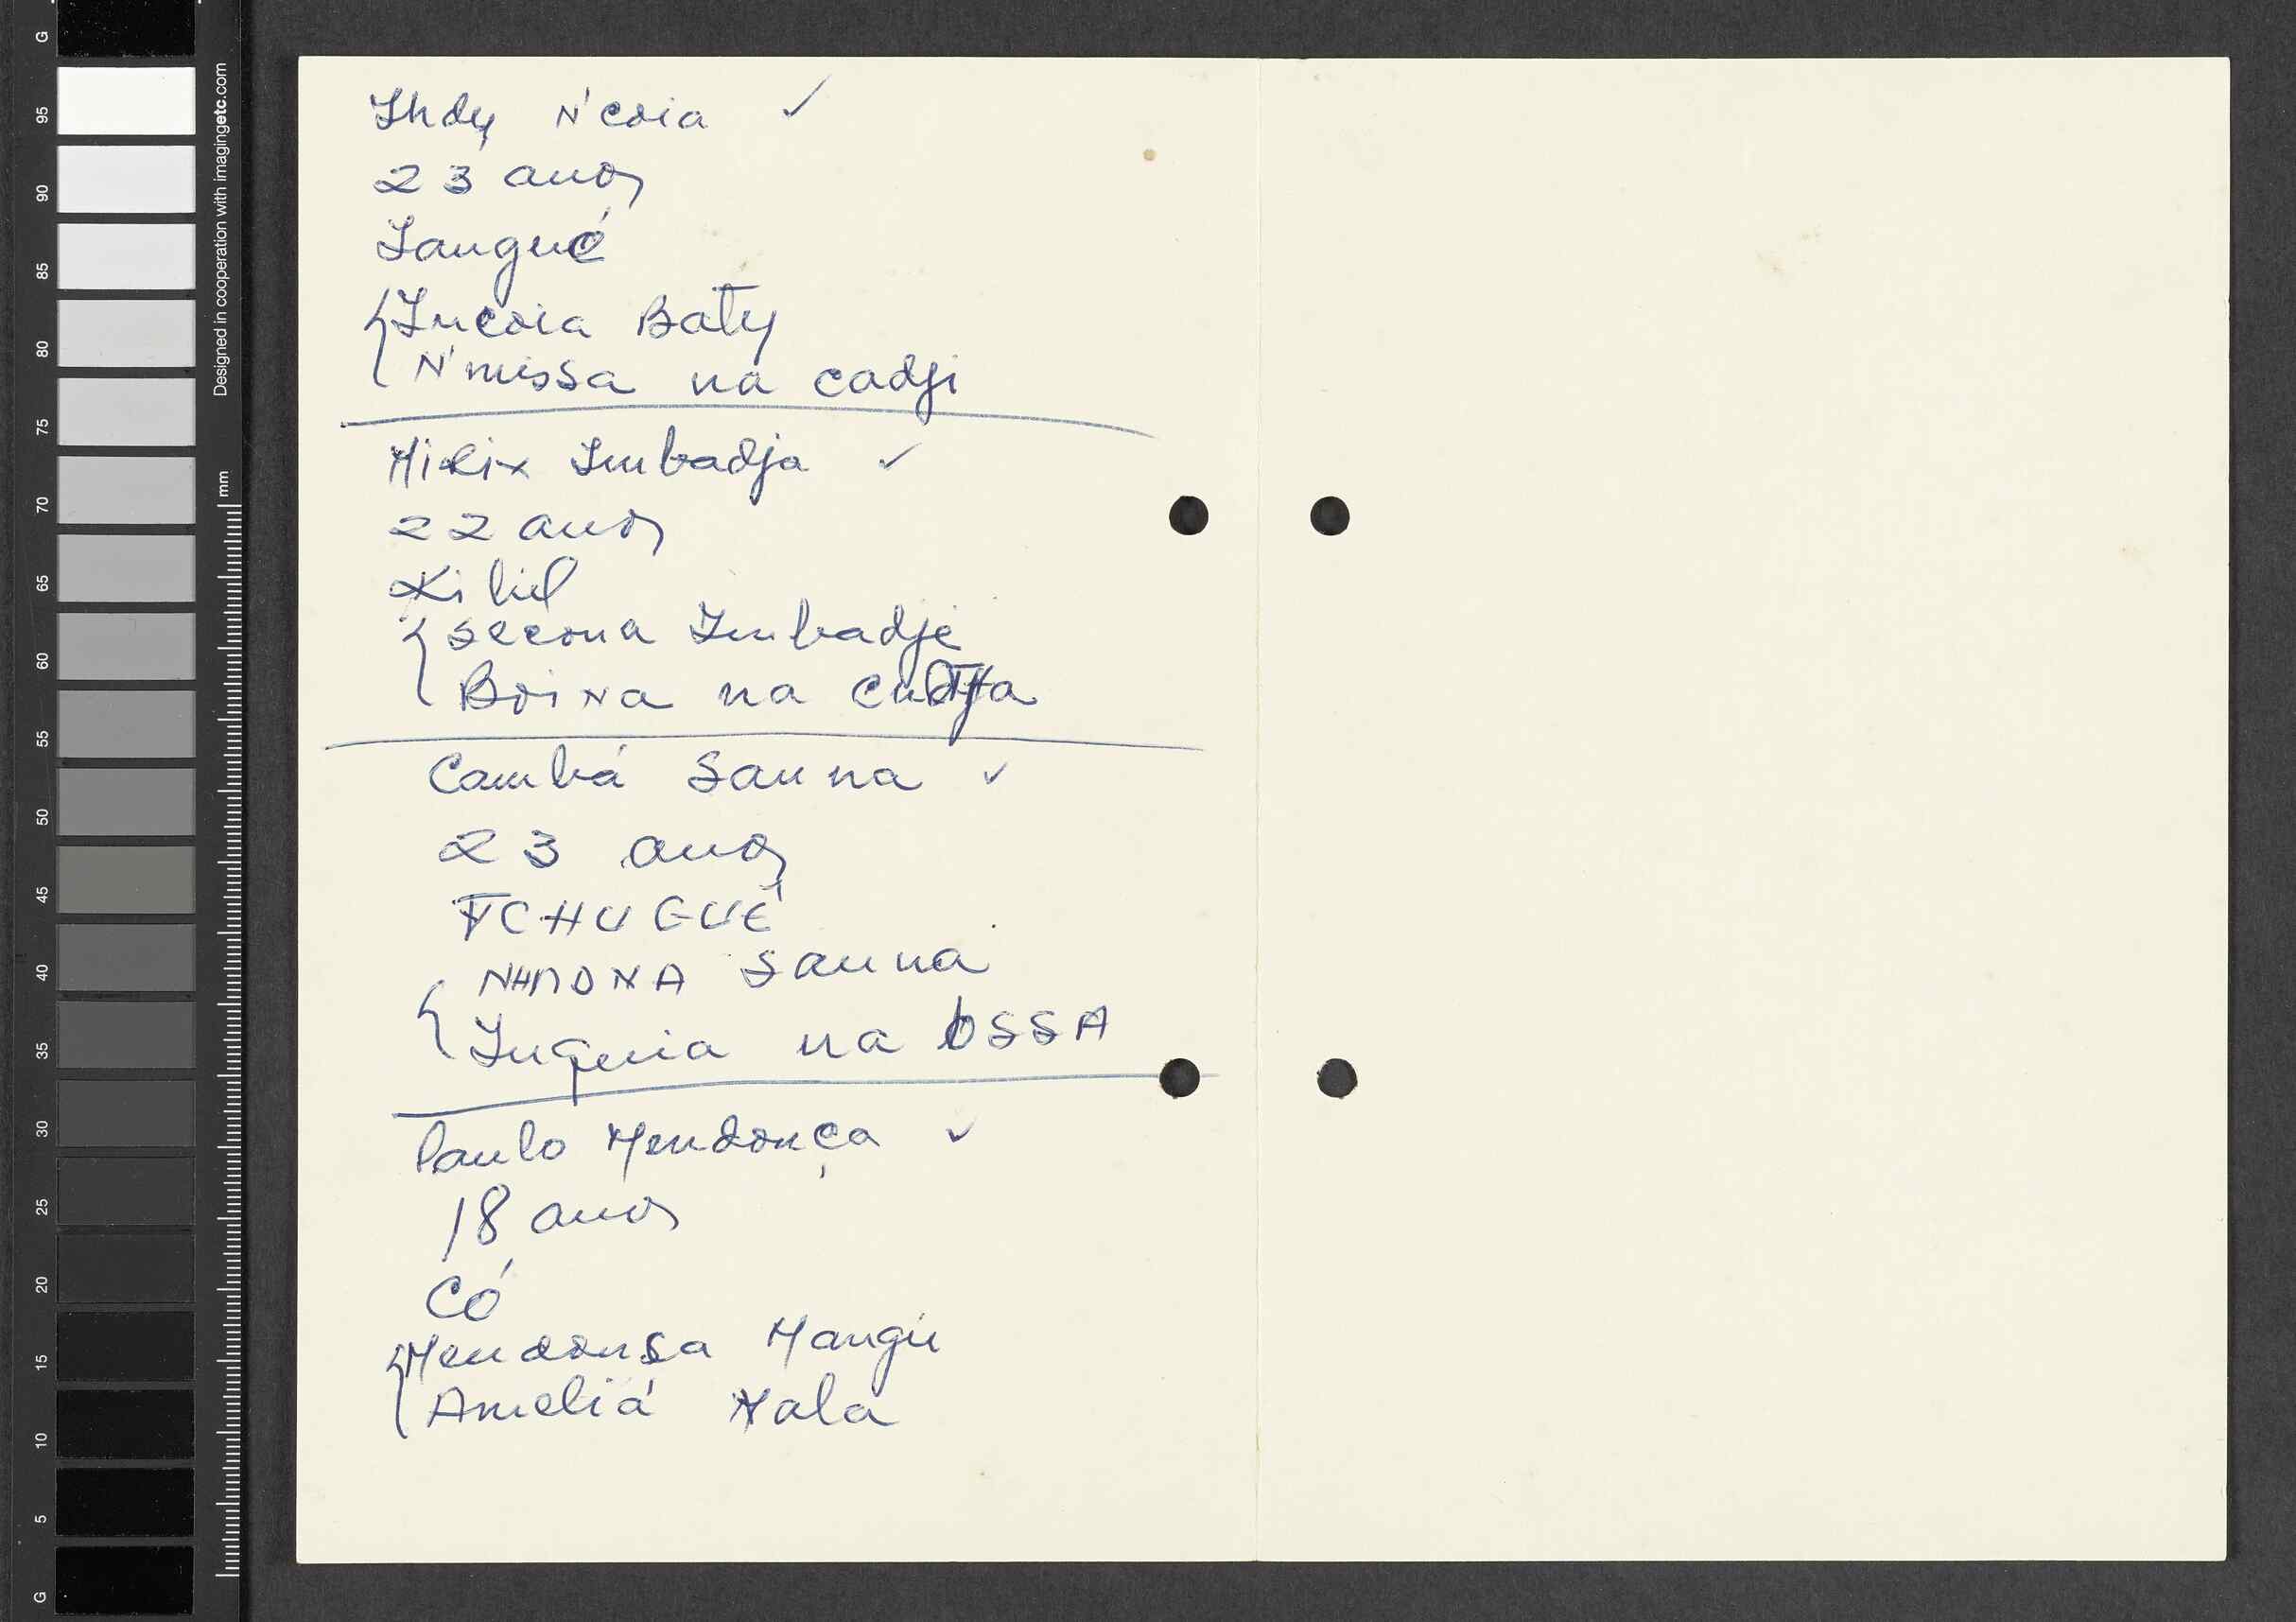 G
95
90
85
80
75
70
65
60
55
50
45
40
35
30
25
20
15
10
5
G
Designed in cooperation with imagingetc.com
mm
Indy N'coia ✓
23 anos
Sangué
{Incoia Baty
N'missa na cadji
Milix Imbadja ✓
22 anos
Kibil
{Secona Imbadje
Boina na
Cambá Sanna ✓
23 anos
TCHUGUÉ
Sanna
{Inquia na OSSA
Paulo Mendonça ✓
18 anos
Có
{Mendonsa Mangu
Ameliá Nala